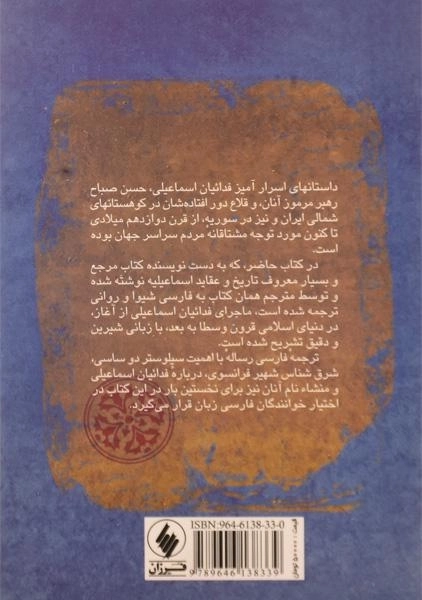 داستانهای اسرار آمیز فدائیان اسماعیلی، حسن صباح
رهبر مرموز آنان، و قلاع دور افتاده‌شان در کوهستانهای
شمالی ایران و نیز در سوریه، از قرن دوازدهم میلادی
تا کنون مورد توجه مشتاقانهٔ مردم سراسر جهان بوده
است.
در کتاب حاضر، که به دست نویسنده کتاب مرجع
و بسیار معروف تاریخ و عقاید اسماعیلیه نوشته شده
و توسط مترجم همان کتاب به فارسی شیوا و روانی
ترجمه شده است، ماجرای فدائیان اسماعیلی از آغاز،
در دنیای اسلامی قرون وسطا به بعد، با زبانی شیرین
و دقیق تشریح شده است.
ترجمه فارسی رسالهٔ با اهمیت سیلوستر دو ساسی،
شرق شناس شهیر فرانسوی، دربارهٔ فدائیان اسماعیلی
و منشاء نام آنان نیز برای نخستین بار در این کتاب در
اختیار خوانندگان فارسی زبان قرار می‌گیرد.
فرزان
ISBN:964-6138-33-0
9789646138339
قیمت: ۵۰۰۰۰ تومان